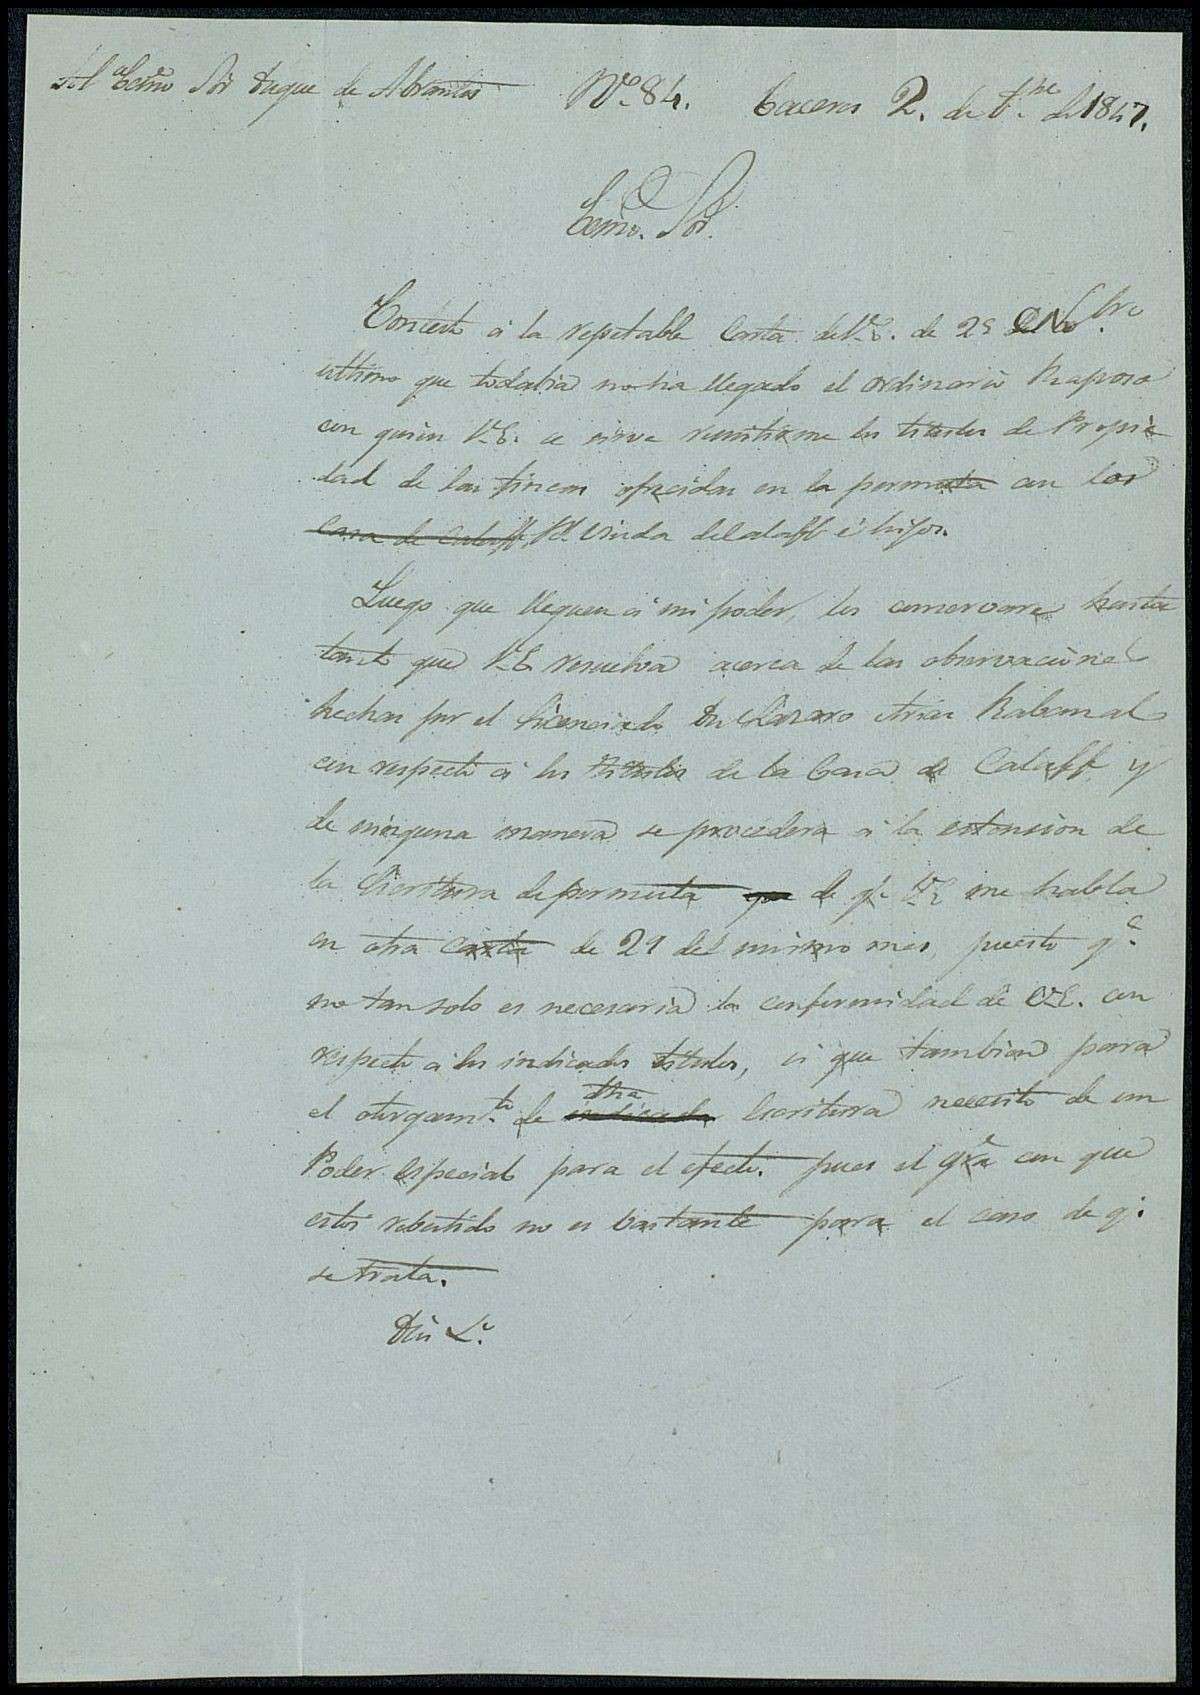 Al Ecmo Sor Duque de Abrantes Nº 84. Caceres 2. de de 1847.
Ecmo. Sor.
Contesto á la respetable carta de V.E. de 25 de Nobre
ultimo que todabia no ha llegado el ordinario Raposo
con quien V.E. se sirve remitirme los titulos de Propie
dad de las fincas ofrecidas en la permuta con los
Casa de Calaff, Viuda de Calaff é hijos.
Luego que lleguen á mi poder, los conservare hasta
tanto que V.E resuelva acerca de las observaciones
hechas por el Licenciado Dn Lazaro Arias Rabanal
con respecto á los titulos de la Casa de Calaff y
de ninguna manera se procederá á la estension de
la Escritura de permuta que de qe V.E me habla
en otra carta de 29 del mismo mes, puesto qe
no tan solo es necesaria la conformidad de V.E. con
respecto á los indicados titulos, si que tambien para
el otorgamto de indicada dha Escritura necesito de un
Poder especial para el efecto. pues el gral con que
estoi rebestido no es bastante para el caso de q.
se trata.
Dios &.